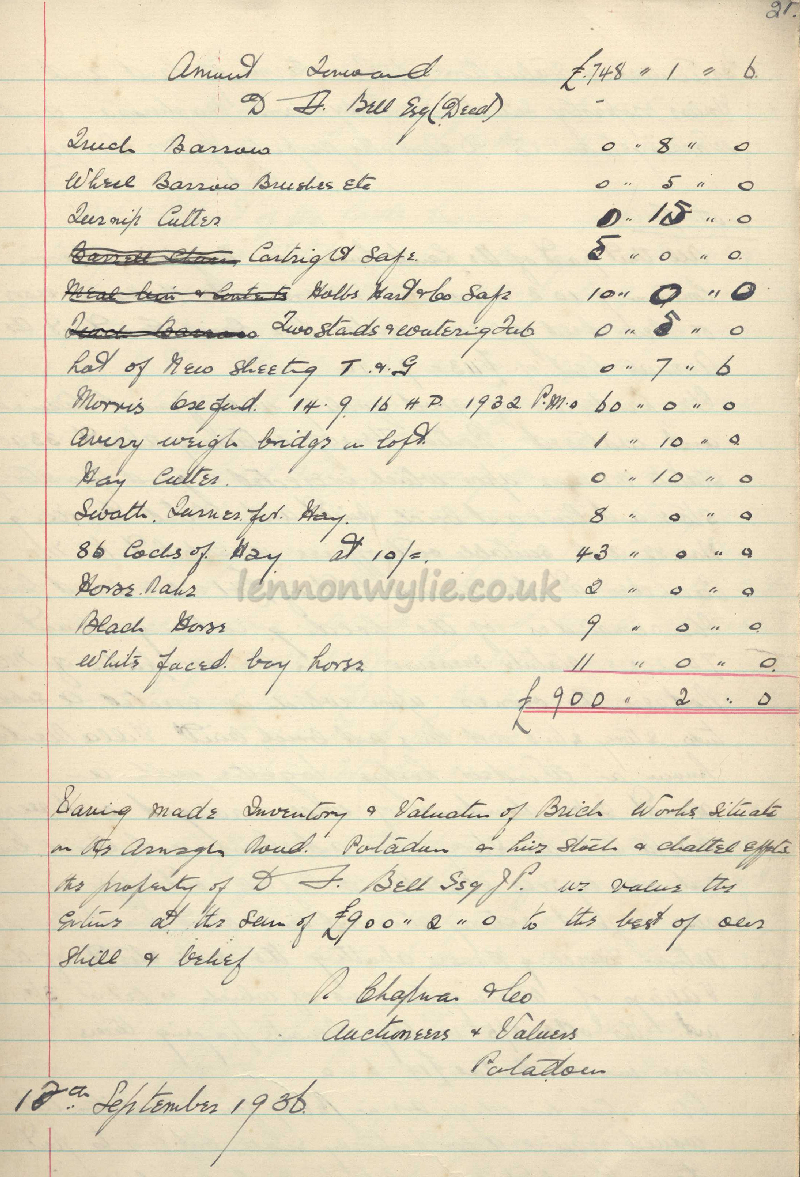 21.
Amount Forward £748 " 1 " 6
D F. Bell Esq (Deed) -
Truck Barrow 0 " 8 " 0
Wheel Barrow Brushes Etc 0 " 5 " 0
Turnip Cutter 0 " 15 " 0
Barrell Churn, Cartright Safe. 5 " 0 " 0
Meal bin & Contents Hobbs Hart & Co Safe 10 " 0 " 0
Truck Barrow Two Stands & Watering Tub 0 " 5 " 0
Lot of New Sheeting T. & G 0 " 7 " 6
Morris Oxford. 14. 9. 16 H P. 1932 60 " 0 " 0
Avery weigh bridge in loft. 1 " 10 " 0
Hay Cutter. 0 " 10 " 0
Swath. Turner for. Hay. 8 " 0 " 0
86 Cocks of Hay at 10/=. 43 " 0 " 0
lennonwylie.co.uk
Horse Rake 2 " 0 " 0
Black Horse 9 " 0 " 0
White faced bay horse 11 " 0 " 0
£ 900 " 2 " 0
Having made Inventory & Valuation of Brick Works Situate
on the Armagh Road. Potadown & live Stock & chattel effects
the property of D F. Bell Esq J.P. we value the
Entire at the Sum of £900 " 2 " 0 to the best of our
Skill & belief
Chapman & Co
Auctioneers & Valuers
Potadown
September 1936